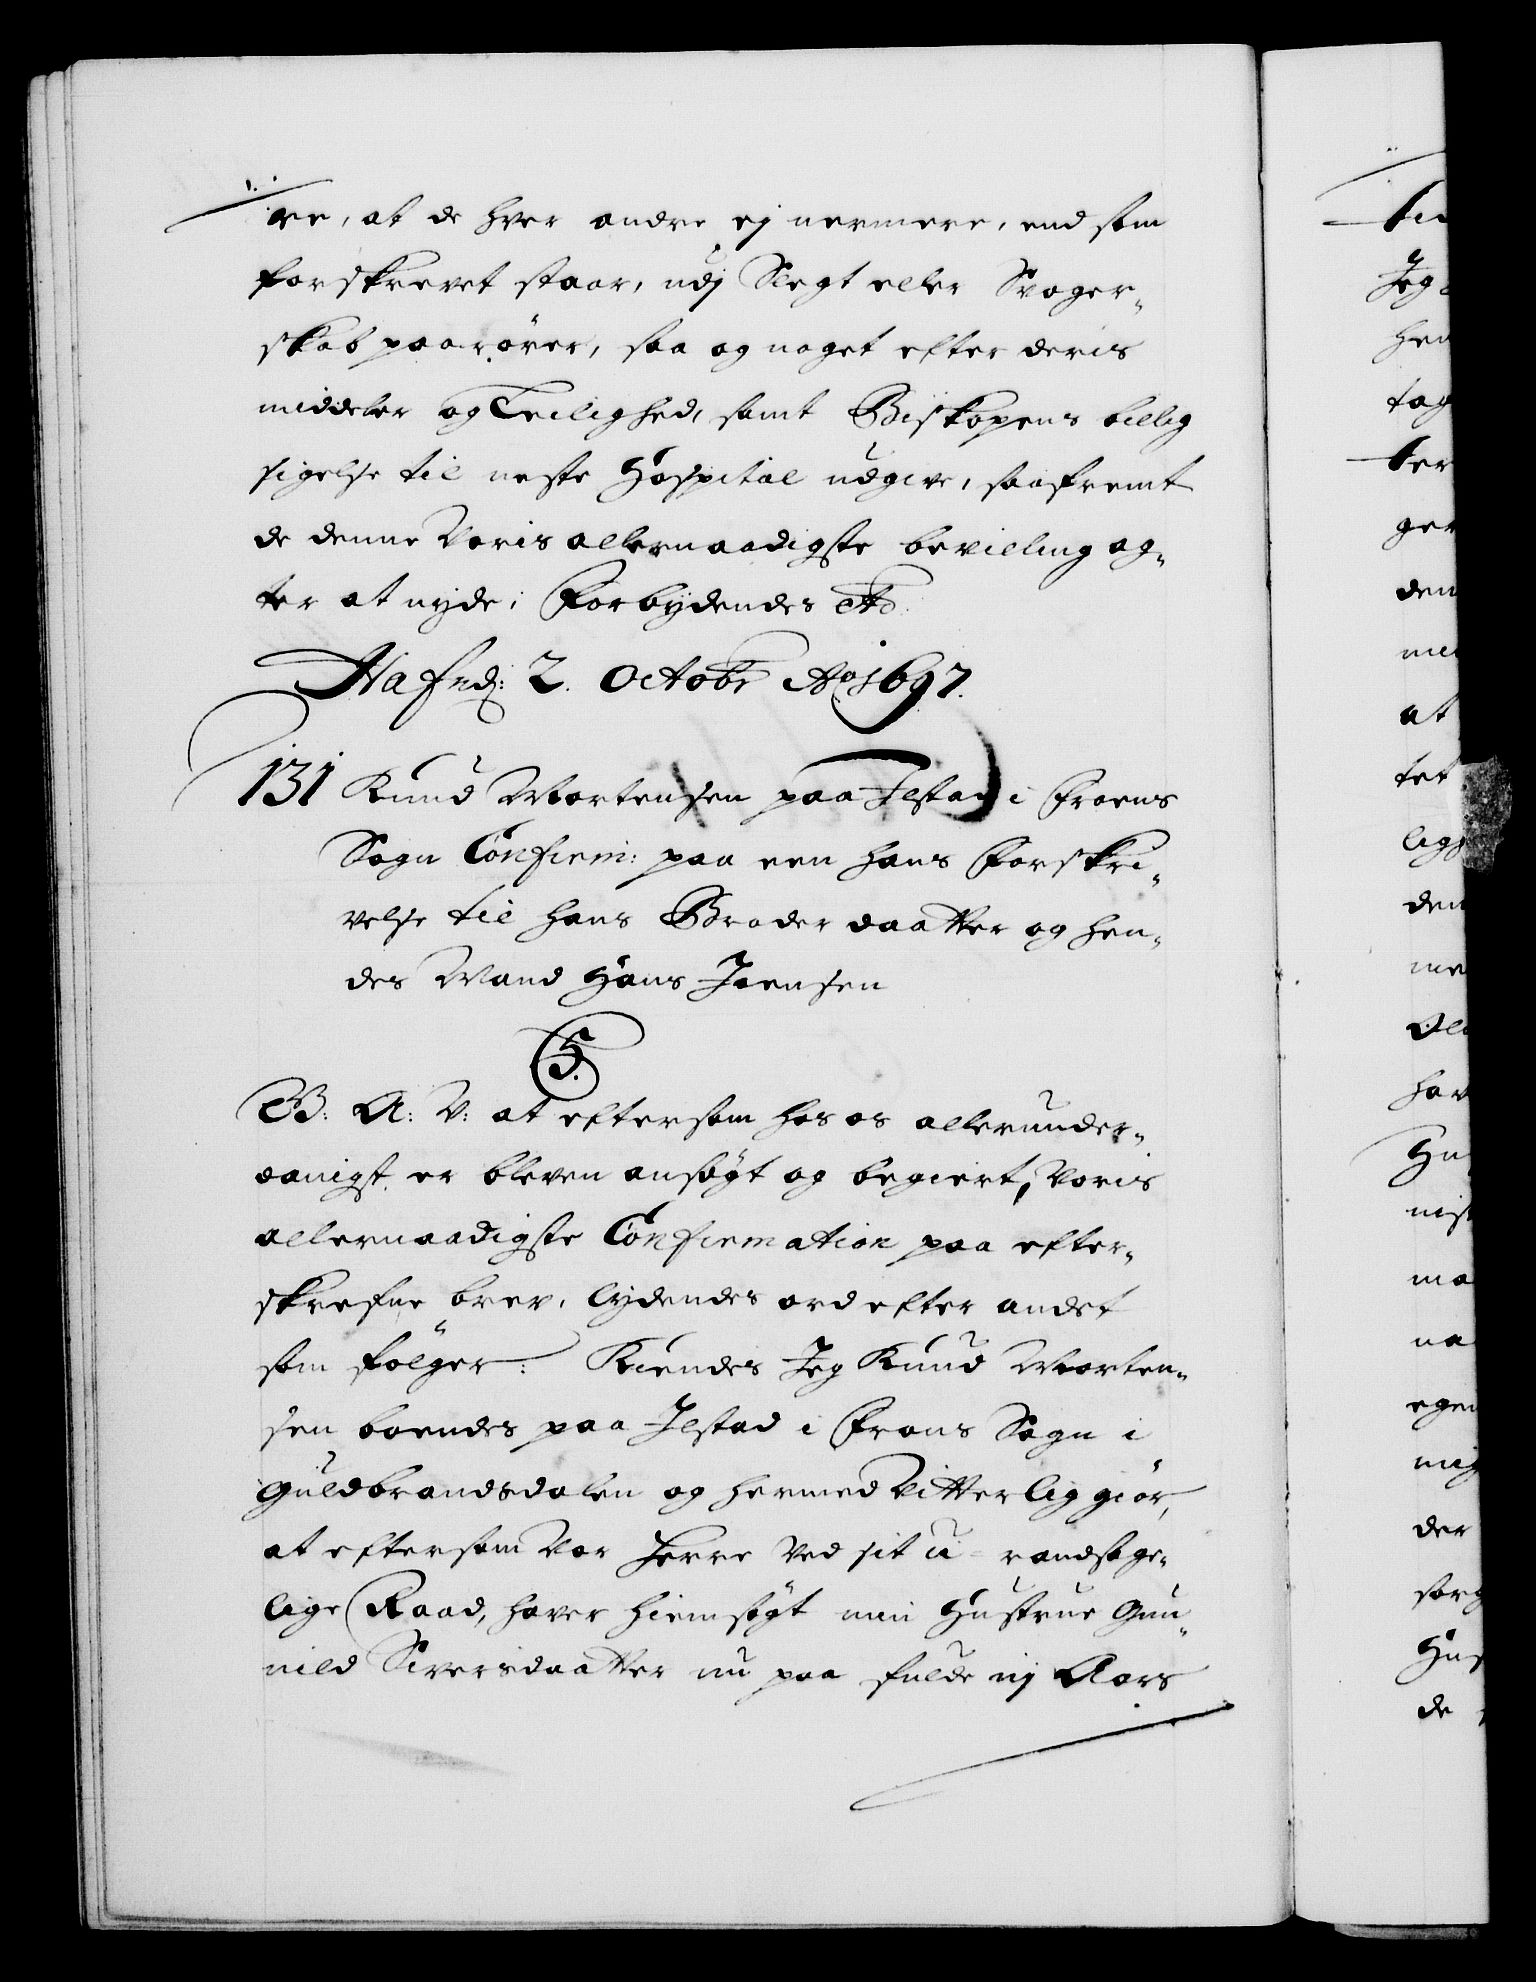 re, at de hver andre ej nermere, end som
forskrevet staar, udj Slegt eller Svoger-
skab paarörer, saa og noget efter deris
middeler og Leilighed, samt Biskopens billig
sigelse til neste Hospital udgive, saafremt
de denne Voris allernaadigste bevilling ag-
ter at nyde; Forbydendes etc.
Hafnd: 2. Octobr Ao 1697.
131 Knud Mortensen paa Ilstad i Froens
Sogn Confirm: paa een hans Forskri-
velse til hans Broder daatter og hen-
des Mand Hans Joensen
S.
G. A: V: at eftersom hos os allerunder-
danigst er bleven ansögt og begiert, Voris
allernaadigste Confirmation paa efter-
skrefne brev, lydendes ord efter andet
som fölger: Kiendes Jeg Knud Morten-
sen boendes paa Ilstad i Frons Sogn i
Guldbrandsdalen og hermed Vitterlig giör,
at eftersom Vor Herre Ved sit u-randsage-
lige Raad, haver hiemsögt min Hustrue Gun-
nild Siversdaatter nu paa fulde nj Aars